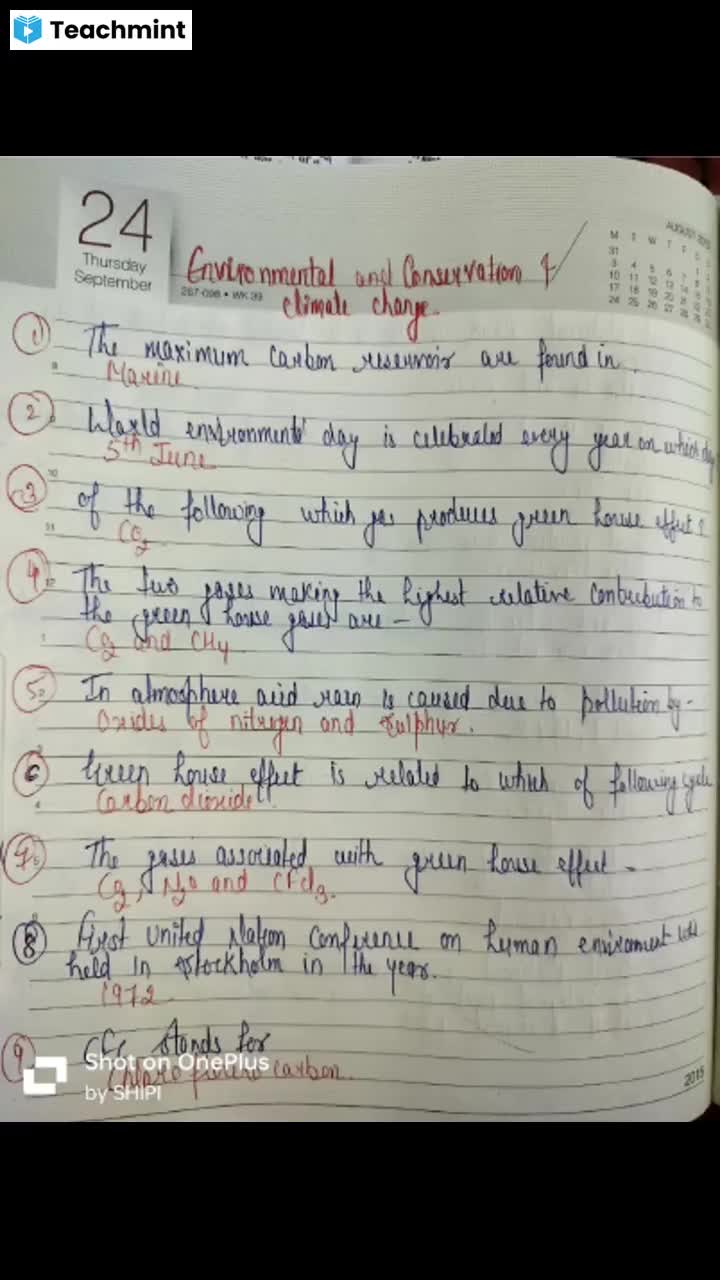 Teachmint
24
Thursday
September
267-098 • WK 39
Environmental and Conservation &
climate change.
AUGUST
M T W T F S S
31
3 4 5 6 7 8
10 11 12 13 14
17 18 19 20 21
24 25 26 27 28 29
① The maximum carbon reservoir are found in.
Marine
② World environmental day is celebrated every year on which day
5th June
③ of the following which gas produces green house effect?
CO2
④ The two gases making the highest relative contribution to
the green house gases are -
CO2 and CH4
⑤ In atmosphere acid rain is caused due to pollution by -
Oxides of nitrogen and sulphur.
⑥ Green house effect is related to which of following cycle
Carbon dioxide
⑦ The gases associated with green house effect -
CO2, N2O and CFCl3.
⑧ First United Nation Conference on human enviroment
held in Stockholm in the year.
1972
⑨ CFC stands for
Chloro fluoro carbon.
Shot on OnePlus
by SHIPI
2015